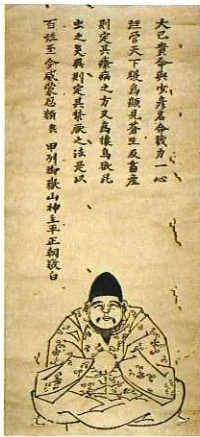 大己貴命與少彦名命戮力一心
經營天下復爲顯見蒼生及畜産
則定其療病之方又爲攘鳥獸昆
虫之災異則定其禁厭之法是以
百姓至今咸蒙恩頼矣 甲州御嶽山神主平正朝敬白